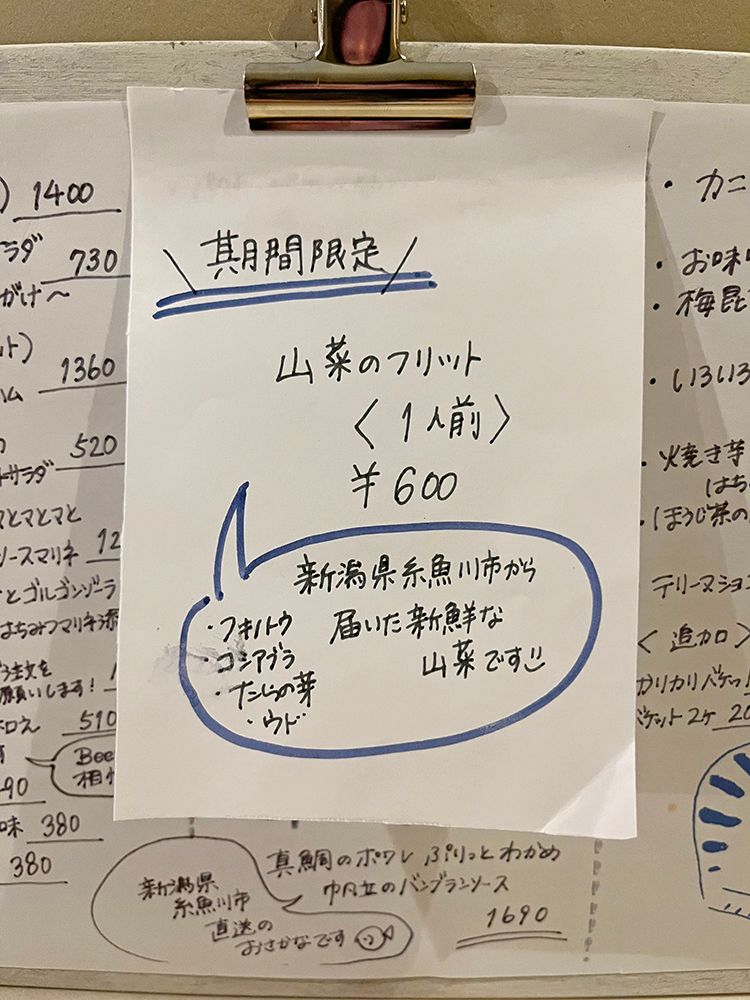 期間限定
山菜のフリット
〈1人前〉
¥600
新潟県糸魚川市から
届いた新鮮な
山菜です
・フキノトウ
・コシアブラ
・たらの芽
・ウド
1400
ラダ 730
がけ〜
1360
ハム
520
サラダ
マとマとマと
ソースマリネ 12
とゴルゴンゾーラ
はちみつマリネ添
注文を
願いします!
510
Bee
90
味 380
380
新潟県
糸魚川市
直送の
おさかなです
真鯛のポワレ ぷりっとわかめ
帆立のバンブランソース
1690
・カニ
・お味
・梅昆
・いろいろ
・焼き芋
はち
・ほうじ茶の
テリーヌショ
〈追加〉
カリカリバゲッ
バゲット2ケ 20